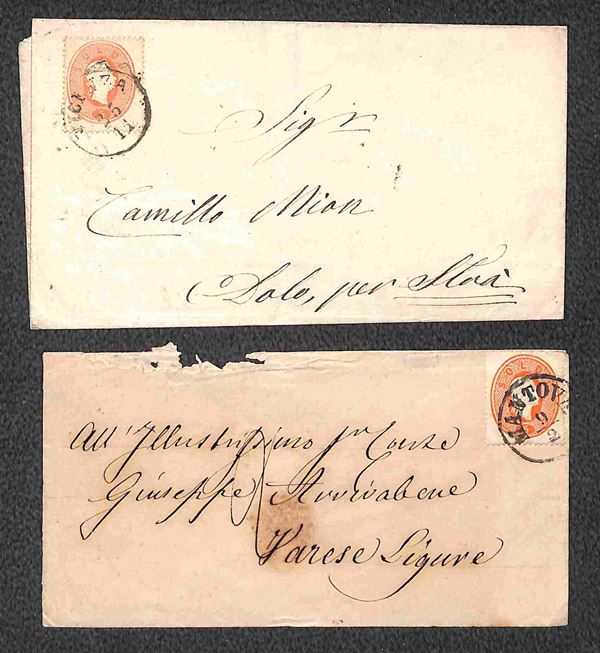 SOLDI
VICENZA
25
11
Sigr
Camillo Mion
Dolo, per Sloà
SOLDI
MANTOVA
9
2
All'Illustrissimo Sr Conte
Giuseppe Arrivabene
Varese Ligure